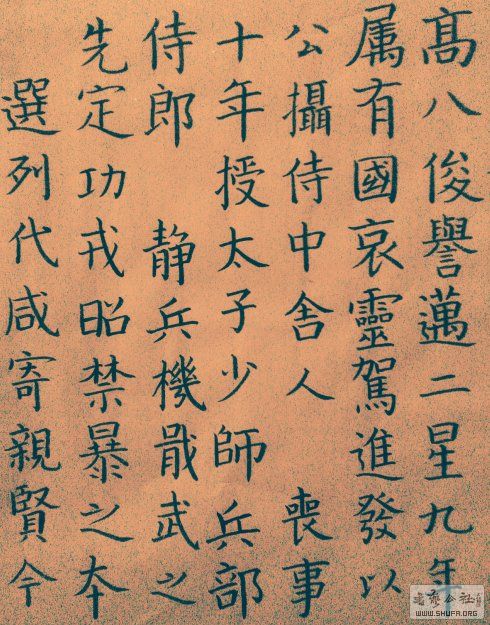 髙八俊譽邁二星九年
属有國哀靈駕進發以
公攝侍中舍人 喪事
十年授太子少師兵部
侍郎 静兵機戢武之
先定功戎昭禁暴之夲
選列代咸寄親賢今
WWW.SHUFA.ORG